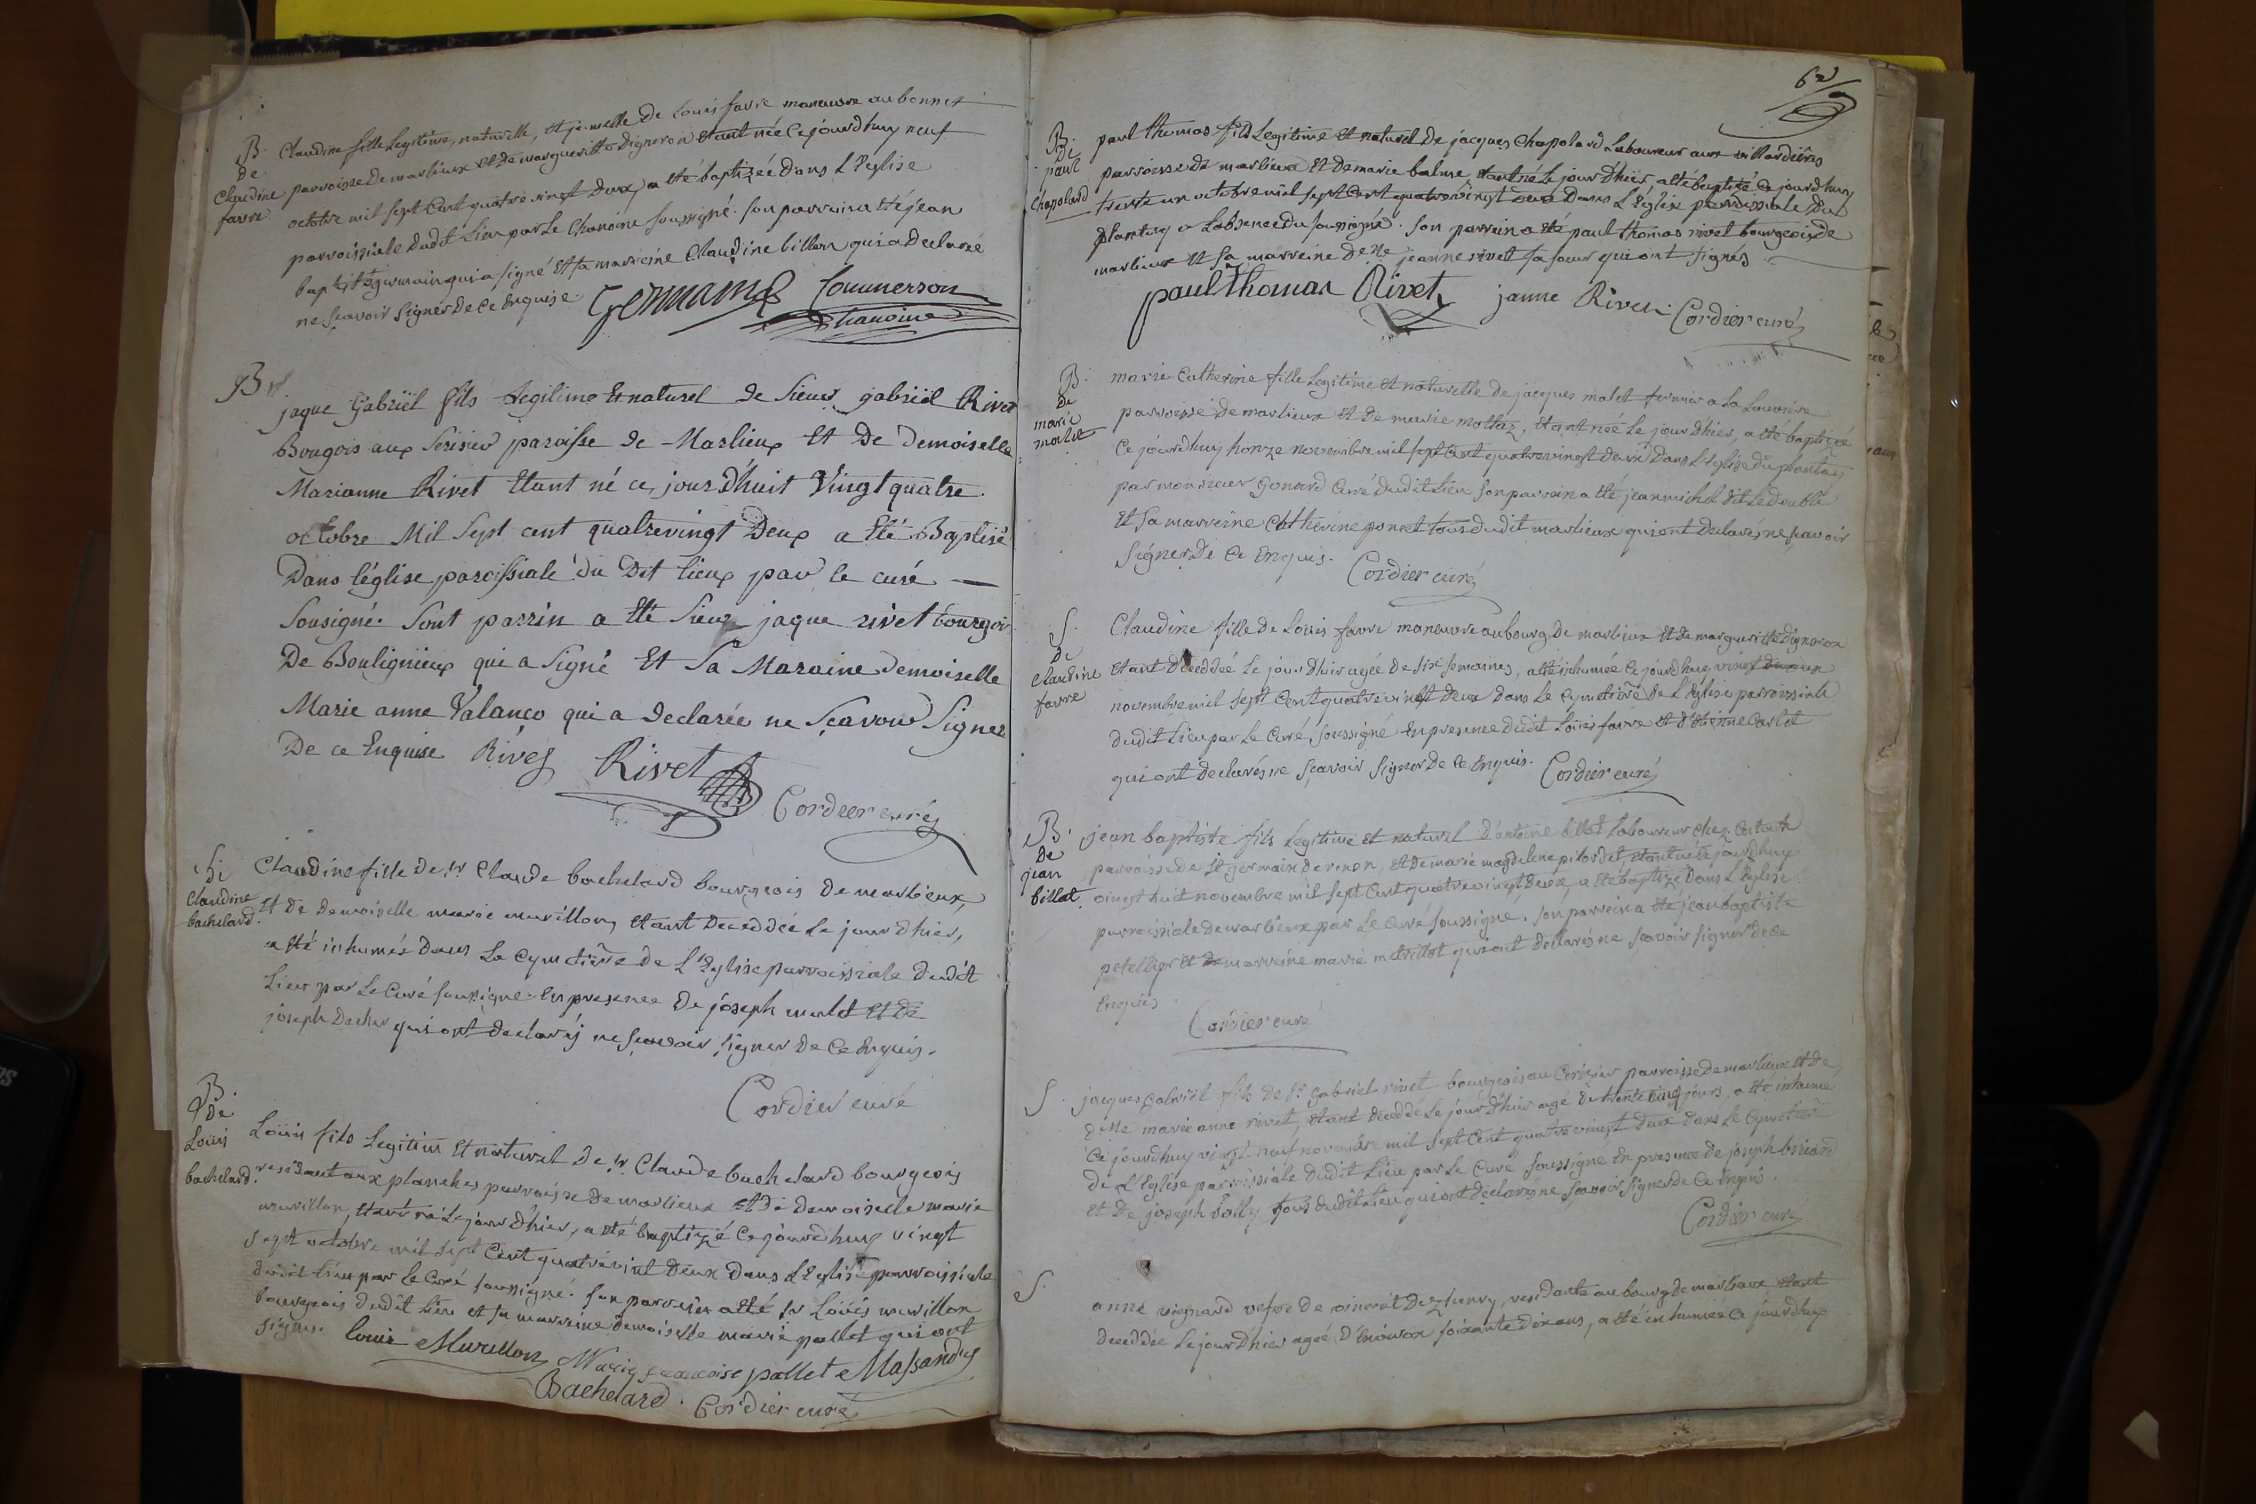 B.
De
Claudine
favre
Claudine fille Legitime, naturelle, et jumelle De Louis favre manœuvre au bonnet
parroisse de marlieux et de margueritte Digneron étant née Ce jourdhuy neuf
octobre mil sept Cent quatre vingt deux, a été baptizée dans L'Eglise
parroissiale dudit Lieu par Le Chanoine soussigné. son parrain a été jean
baptiste germain qui a signé et sa marreine Claudine billon qui a Declarée
ne sçavoir signer de Ce Enquise.
Germain Commerson
chanoine
B
jaque Gabriël fils Legitime et naturel de Sieur gabriël Rivet
Bougois aux Serisier paroisse de Marlieux Et De Demoiselle
Marianne Rivet Etant né ce jourd'huit Vingt quatre
octobre Mil Sept cent quatrevingt Deux a Eté Baptisé
Dans l'église paroissiale du Dit lieux par le curé
Sousigné. Sont parrin a Eté Sieur jaque rivet bourgois
De Boulignieux qui a Signé Et Sa Maraine Demoiselle
Marie anne Valanco qui a declarée ne Sçavoir Signer
De ce Enquise Rivet Rivet
Cordier curé
Si
Claudine
bachelard
Claudine fille de sr Claude bachelard bourgeois de marlieux,
Et de Demoiselle marie murillon, étant Deceddée Le jour d'hier,
a été inhumée dans Le Cymetière de L'Eglise parroissiale dudit
Lieu par Le Curé soussigné. En presence De joseph malet et de
joseph qui ont declarés ne sçavoir signer De Ce Enquis.
Cordier curé
B.
de
Loüis
bachelard.
Loüis fils Legitime et naturel De sr Claude bachelard bourgeois
residant aux planches parroisse de marlieux et de demoiselle marie
murillon, étant né Le jour d'hier, a été baptizé Ce jourdhuy vingt
sept octobre mil sept Cent quatrevint deux dans L'Eglise parroissiale
dudit Lieu par Le Curé soussigné. son parrein a été sr Loüis murillon
bourgeois dudit Lieu et sa marreine demoiselle marie pallet qui ont
signés. Louis Murillon Marie francoise pallet Massandry
Bachelard. Cordier curé
62
B.
De
paul
Chapolard
paul thomas fils Legitime et naturel De jacques Chapolard Laboureur aux villardières
parroisse de marlieux et de marie balme, étant né Le jour d'hier, a été baptizé Ce jourdhuy
trente un octobre mil sept Cent quatrevingt deux Dans L'Eglise parroissiale du
plantay a L'absence du soussigné. son parrein a été paul thomas rivet bourgeois de
marlieux et sa marreine Delle jeanne rivet sa sœur qui ont signés.
paul thomas Rivet janne Rivet. Cordier curé
B.
De
marie
malet
marie Catherine fille Legitime et naturelle de jacques malet fermier a La
parroisse de marlieux et de marie mollaz, étant née Le jour d'hier, a été baptizée
Ce jourdhuy honze novembre mil sept Cent quatrevingt deux Dans L'Eglise du plantay
par monsieur gonard Curé dudit Lieu son parrain a été jean michel dit Ledouble
et sa marreine Catherine ponet tous dudit marlieux qui ont declarés ne sçavoir
signer De Ce Enquis. Cordier curé
S.
De
Claudine
favre
Claudine fille de Loüis favre manœuvre au bourg De marlieux et de marguerite digneron
étant deceddée Le jour d'hier agée de six semaines, a été inhumée Ce jourdhuy vingt
novembre mil sept Cent quatrevingt deux dans Le Cymetière de L'Eglise parroissiale
dudit Lieu par Le Curé soussigné En presence dudit Loüis favre et d'étienne Carlet
qui ont declarés ne sçavoir signer de Ce Enquis. Cordier curé
B.
De
jean
billat.
jean baptiste fils Legitime et naturel d'antoine billat Laboureur chez
parroisse de St germain de renon, et de marie magdelene pitordet, étant né Ce jourdhuy
vingt huit novembre mil sept Cent quatrevingt deux, a été baptizé Dans L'Eglise
parroissiale de marlieux par Le Curé soussigné. son parrein a été jean baptiste
petellier et sa marreine marie qui ont declarés ne sçavoir signer de Ce
Enquis
Cordier curé
S.
jacques gabriël fils de sr gabriel rivet bourgeois au Cerisier parroisse de marlieux et de
delle marie anne rivet, étant deceddé Le jour d'hier agé de trente Cinq jours, a été inhumé
Ce jourdhuy vingt neuf novembre mil sept Cent quatre vingt deux dans Le Cymetière
de L'Eglise parroissiale dudit Lieu par Le Curé soussigné En presence de joseph
et De joseph bolly tous dudit Lieu qui ont declarés ne sçavoir signer de Ce Enquis.
Cordier curé
S.
anne vignard vefve de vincent residante au bourg de marlieux étant
deceddée Le jour d'hier agée d'environ soixante dix ans, a été inhumée Ce jourdhuy